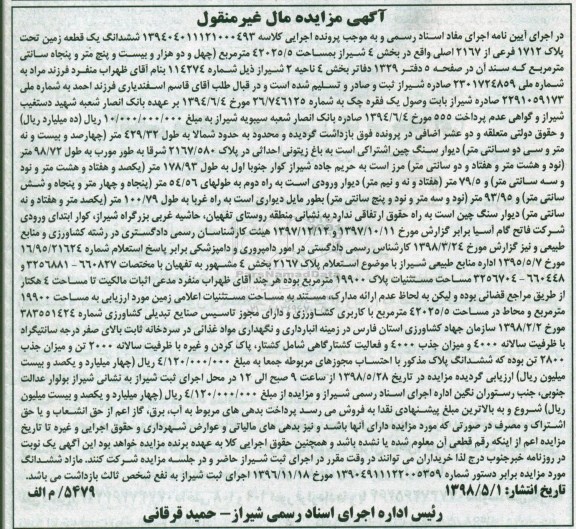 آگهی مزایده مال غیرمنقول
در اجرای آیین نامه اجرای مفاد اسناد رسمی و به موجب پرونده اجرایی کلاسه ۱۳۹۴۰۴۰۱۱۱۲۱۰۰۰۴۹۳ ششدانگ یک قطعه زمین تحت
پلاک ۱۷۱۲ فرعی از ۲۱۶۷ اصلی واقع در بخش ۴ شیراز بمساحت ۴۲۰۲۵/۵ مترمربع (چهل و دو هزار و بیست و پنج متر و پنجاه سانتی
مترمربع) که سند آن در صفحه ۵ دفتر ۱۳۲۹ دفاتر بخش ۴ ناحیه ۲ شیراز ذیل شماره ۱۱۴۲۷۴ بنام آقای ظهراب منفرد فرزند مراد به
شماره ملی ۲۳۰۱۷۲۴۸۵۹ صادره شیراز ثبت و صادر و تسلیم شده است و در قبال طلب آقای قاسم اسفندیاری فرزند احمد به شماره ملی
۲۲۹۱۰۵۹۱۷۳ صادره شیراز بابت وصول یک فقره چک به شماره ۲۶/۷۴۶۱۲۵ مورخ ۱۳۹۴/۶/۴ بر عهده بانک انصار شعبه شهید دستغیب
شیراز و گواهی عدم پرداخت ۵۵۵ مورخ ۱۳۹۴/۶/۴ صادره بانک انصار شعبه سیبویه شیراز به مبلغ ۱۰/۰۰۰/۰۰۰/۰۰۰ ریال (ده میلیارد ریال)
و حقوق دولتی متعلقه و دو عشر اضافی در پرونده فوق بازداشت گردیده و محدود به حدود شمالا به طول ۴۲۹/۳۲ متر (چهارصد و بیست و نه
متر و سی دو سانتی متر) دیوار سنگ چین اشتراکی است به باغ زیتونی احداثی در پلاک ۲۱۶۷/۵۸۰ شرقا به طور مورب به طول ۹۸/۷۲ متر
(نود و هشت متر و هفتاد و دو سانتی متر) مرز است به حریم جاده شیراز کوار جنوبا اول به طول ۱۷۸/۹۳ متر (یکصد و هفتاد و هشت متر و نود
و سه سانتی متر) و ۷۹/۵ متر (هفتاد و نه و نیم متر) دیوار ورودی است به راه دوم به طولهای ۵۴/۵۶ متر (پنجاه و چهار متر و پنجاه و شش
سانتی متر) و ۹۳/۹۵ متر (نود و سه متر و نود و پنج سانتی متر) بطور مایل دیواری است به راه غربا به طول ۱۰۰/۷۹ متر (یکصد متر و هفتاد و نه
سانتی متر) دیوار سنگ چین است به راه حقوق ارتفاقی ندارد به نشانی منطقه روستای تفهیان، حاشیه غربی بزرگراه شیراز، کوار ابتدای ورودی
شرکت فاتح گام آسیا برابر گزارش مورخ ۱۳۹۷/۱۰/۱۱ و ۱۳۹۷/۱۲/۱۴ هیئت کارشناسان رسمی دادگستری در رشته کشاورزی و منابع
طبیعی و نیز گزارش مورخ ۱۳۹۸/۳/۲۴ کارشناس رسمی دادگستی در امور دامپروری و دامپزشکی برابر پاسخ استعلام شماره ۱۶/۹۵/۲۱۶۲۴
مورخ ۱۳۹۵/۵/۷ اداره منابع طبیعی شیراز با موضوع استعلام پلاک ۲۱۶۷ بخش ۴ مشهور به تفهیان با مختصات ۶۶۰۸۲۷ - ۳۲۵۶۸۸۱ و
۶۶۰۴۴۸ - ۳۲۵۶۷۰۴ مساحت مستثنیات پلاک ۱۹۹۰۰ مترمربع بوده هر چند آقای ظهراب منفرد مدعی اثبات مالکیت تا مساحت ۴ هکتار
از طریق مراجع قضائی بوده و لیکن به لحاظ عدم ارائه مدارک، مستند به مساحت مستثنیات اعلامی زمین مورد ارزیابی به مساحت ۱۹۹۰۰
مترمربع و محاط در مساحت ۴۲۰۲۵/۵ مترمربع با کاربری کشاورزی و دارای مجوز تاسیس صنایع تبدیلی کشاورزی شماره ۳۸۳۵۵۱۴۲۴
مورخ ۱۳۹۸/۲/۲ سازمان جهاد کشاورزی استان فارس در زمینه انبارداری و نگهداری مواد غذائی در سردخانه ثابت بالای صفر درجه سانتیگراد
با ظرفیت سالانه ۴۰۰۰ و میزان جذب ۴۰۰۰ و فعالیت کشتارگاهی شامل کشتار، پاک کردن و غیره با ظرفیت سالانه ۲۰۰۰ تن و میزان جذب
۲۸۰۰ تن بوده که ششدانگ پلاک مذکور با احتساب مجوزهای مربوطه جمعا به مبلغ ۴/۱۲۰/۰۰۰/۰۰۰ ریال (چهار میلیارد و یکصد و بیست
میلیون ریال) ارزیابی گردیده مزایده در تاریخ ۱۳۹۸/۵/۲۸ از ساعت ۹ صبح الی ۱۲ در محل اجرای ثبت شیراز به نشانی شیراز بولوار عدالت
جنوبی، جنب رستوران نگین اداره اجرای اسناد رسمی شیراز و مزایده از مبلغ ۴/۱۲۰/۰۰۰/۰۰۰ ریال (چهار میلیارد و یکصد و بیست میلیون
ریال) شروع و به بالاترین مبلغ پیشنهادی نقدا به فروش می رسد پرداخت بدهی های مربوط به آب، برق، گاز اعم از حق انشعاب و یا حق
اشتراک و مصرف در صورتی که مورد مزایده دارای آنها باشد و نیز بدهی های مالیاتی و عوارض شهرداری و حقوق اجرایی و غیره تا تاریخ
مزایده اعم از اینکه رقم قطعی آن معلوم شده یا نشده باشد و همچنین حقوق اجرایی کلا به عهده برنده مزایده خواهد بود این آگهی یک نوبت
در روزنامه خبرجنوب درج لذا خریداران می توانند در وقت مقرر در اجرای ثبت شیراز حاضر و در جلسه مزایده شرکت کنند. مازاد ششدانگ
مورد مزایده برابر دستور شماره ۱۳۹۰۴۹۱۱۱۲۲۰۰۵۳۵۹ مورخ ۱۳۹۶/۱۱/۱۸ اجرای ثبت شیراز به نفع شخص ثالث بازداشت می باشد.
تاریخ انتشار: ۱۳۹۸/۵/۱
۵۴۷۹/ م الف
رئیس اداره اجرای اسناد رسمی شیراز – حمید قرقانی